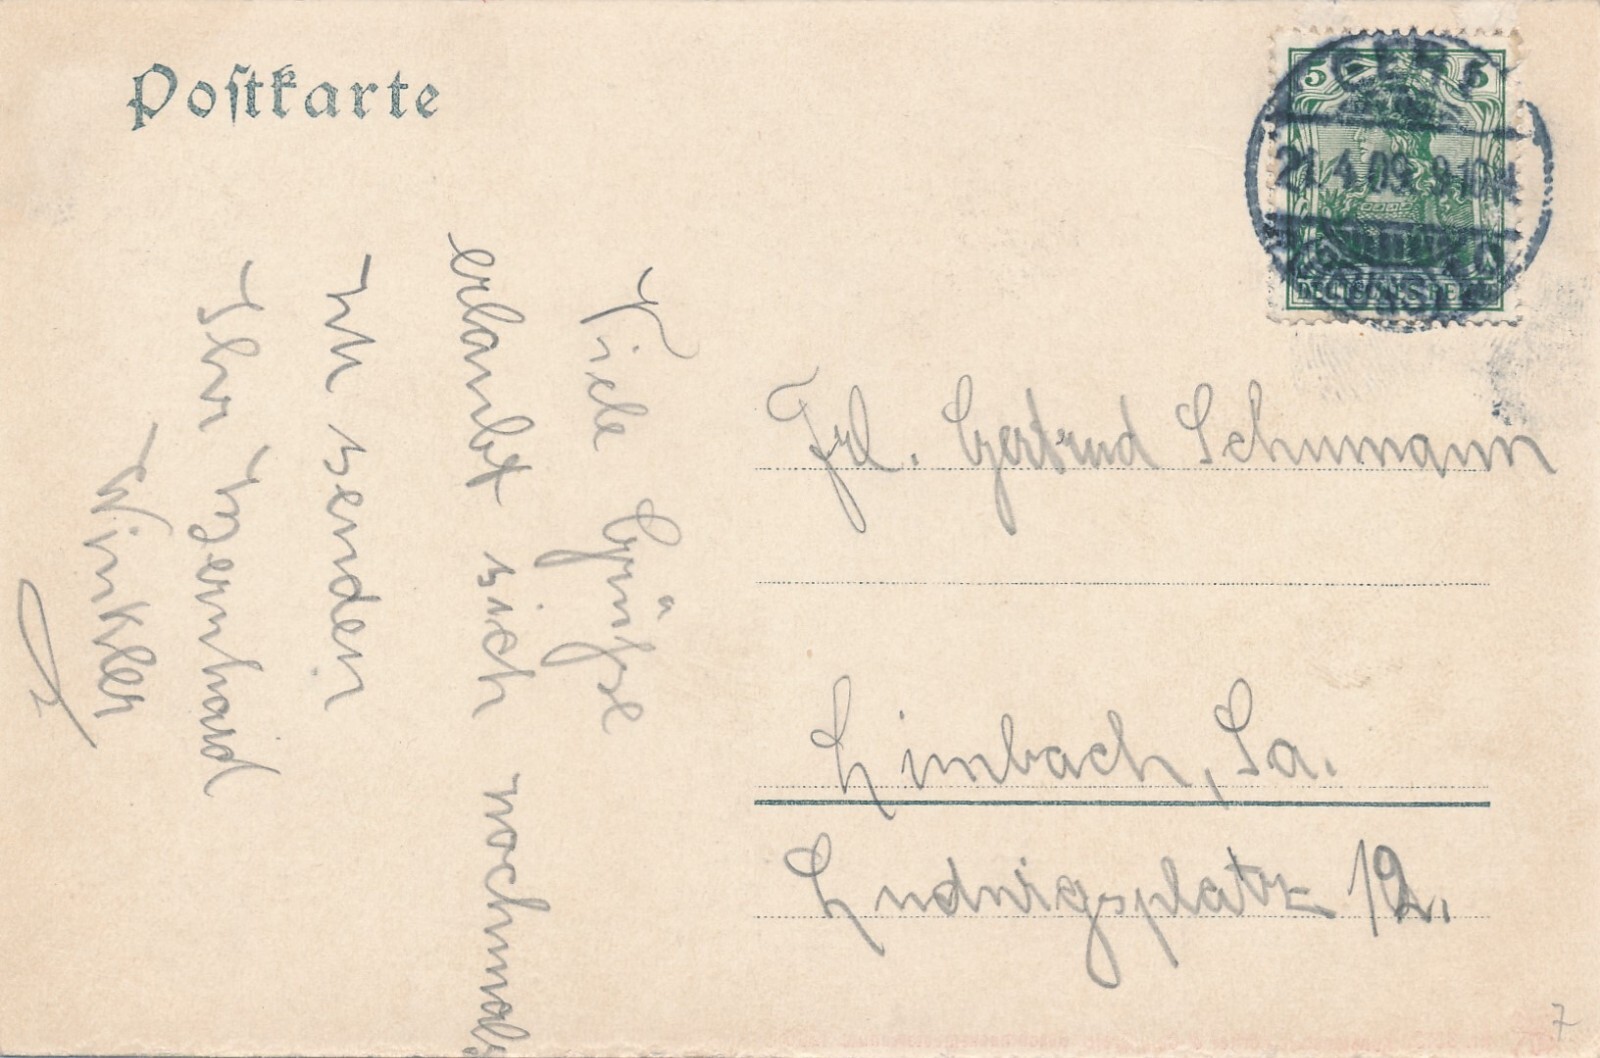 Postkarte
5 5
21.4.09. 8-
DEUTSCHES REICH
Viele Grüsse
erlaubt sich nochmals
zu senden
Ihr Bernhard
Winkler
Frl. Gertrud Schumann
Limbach, Sa.
Ludwigsplatz 12.
7